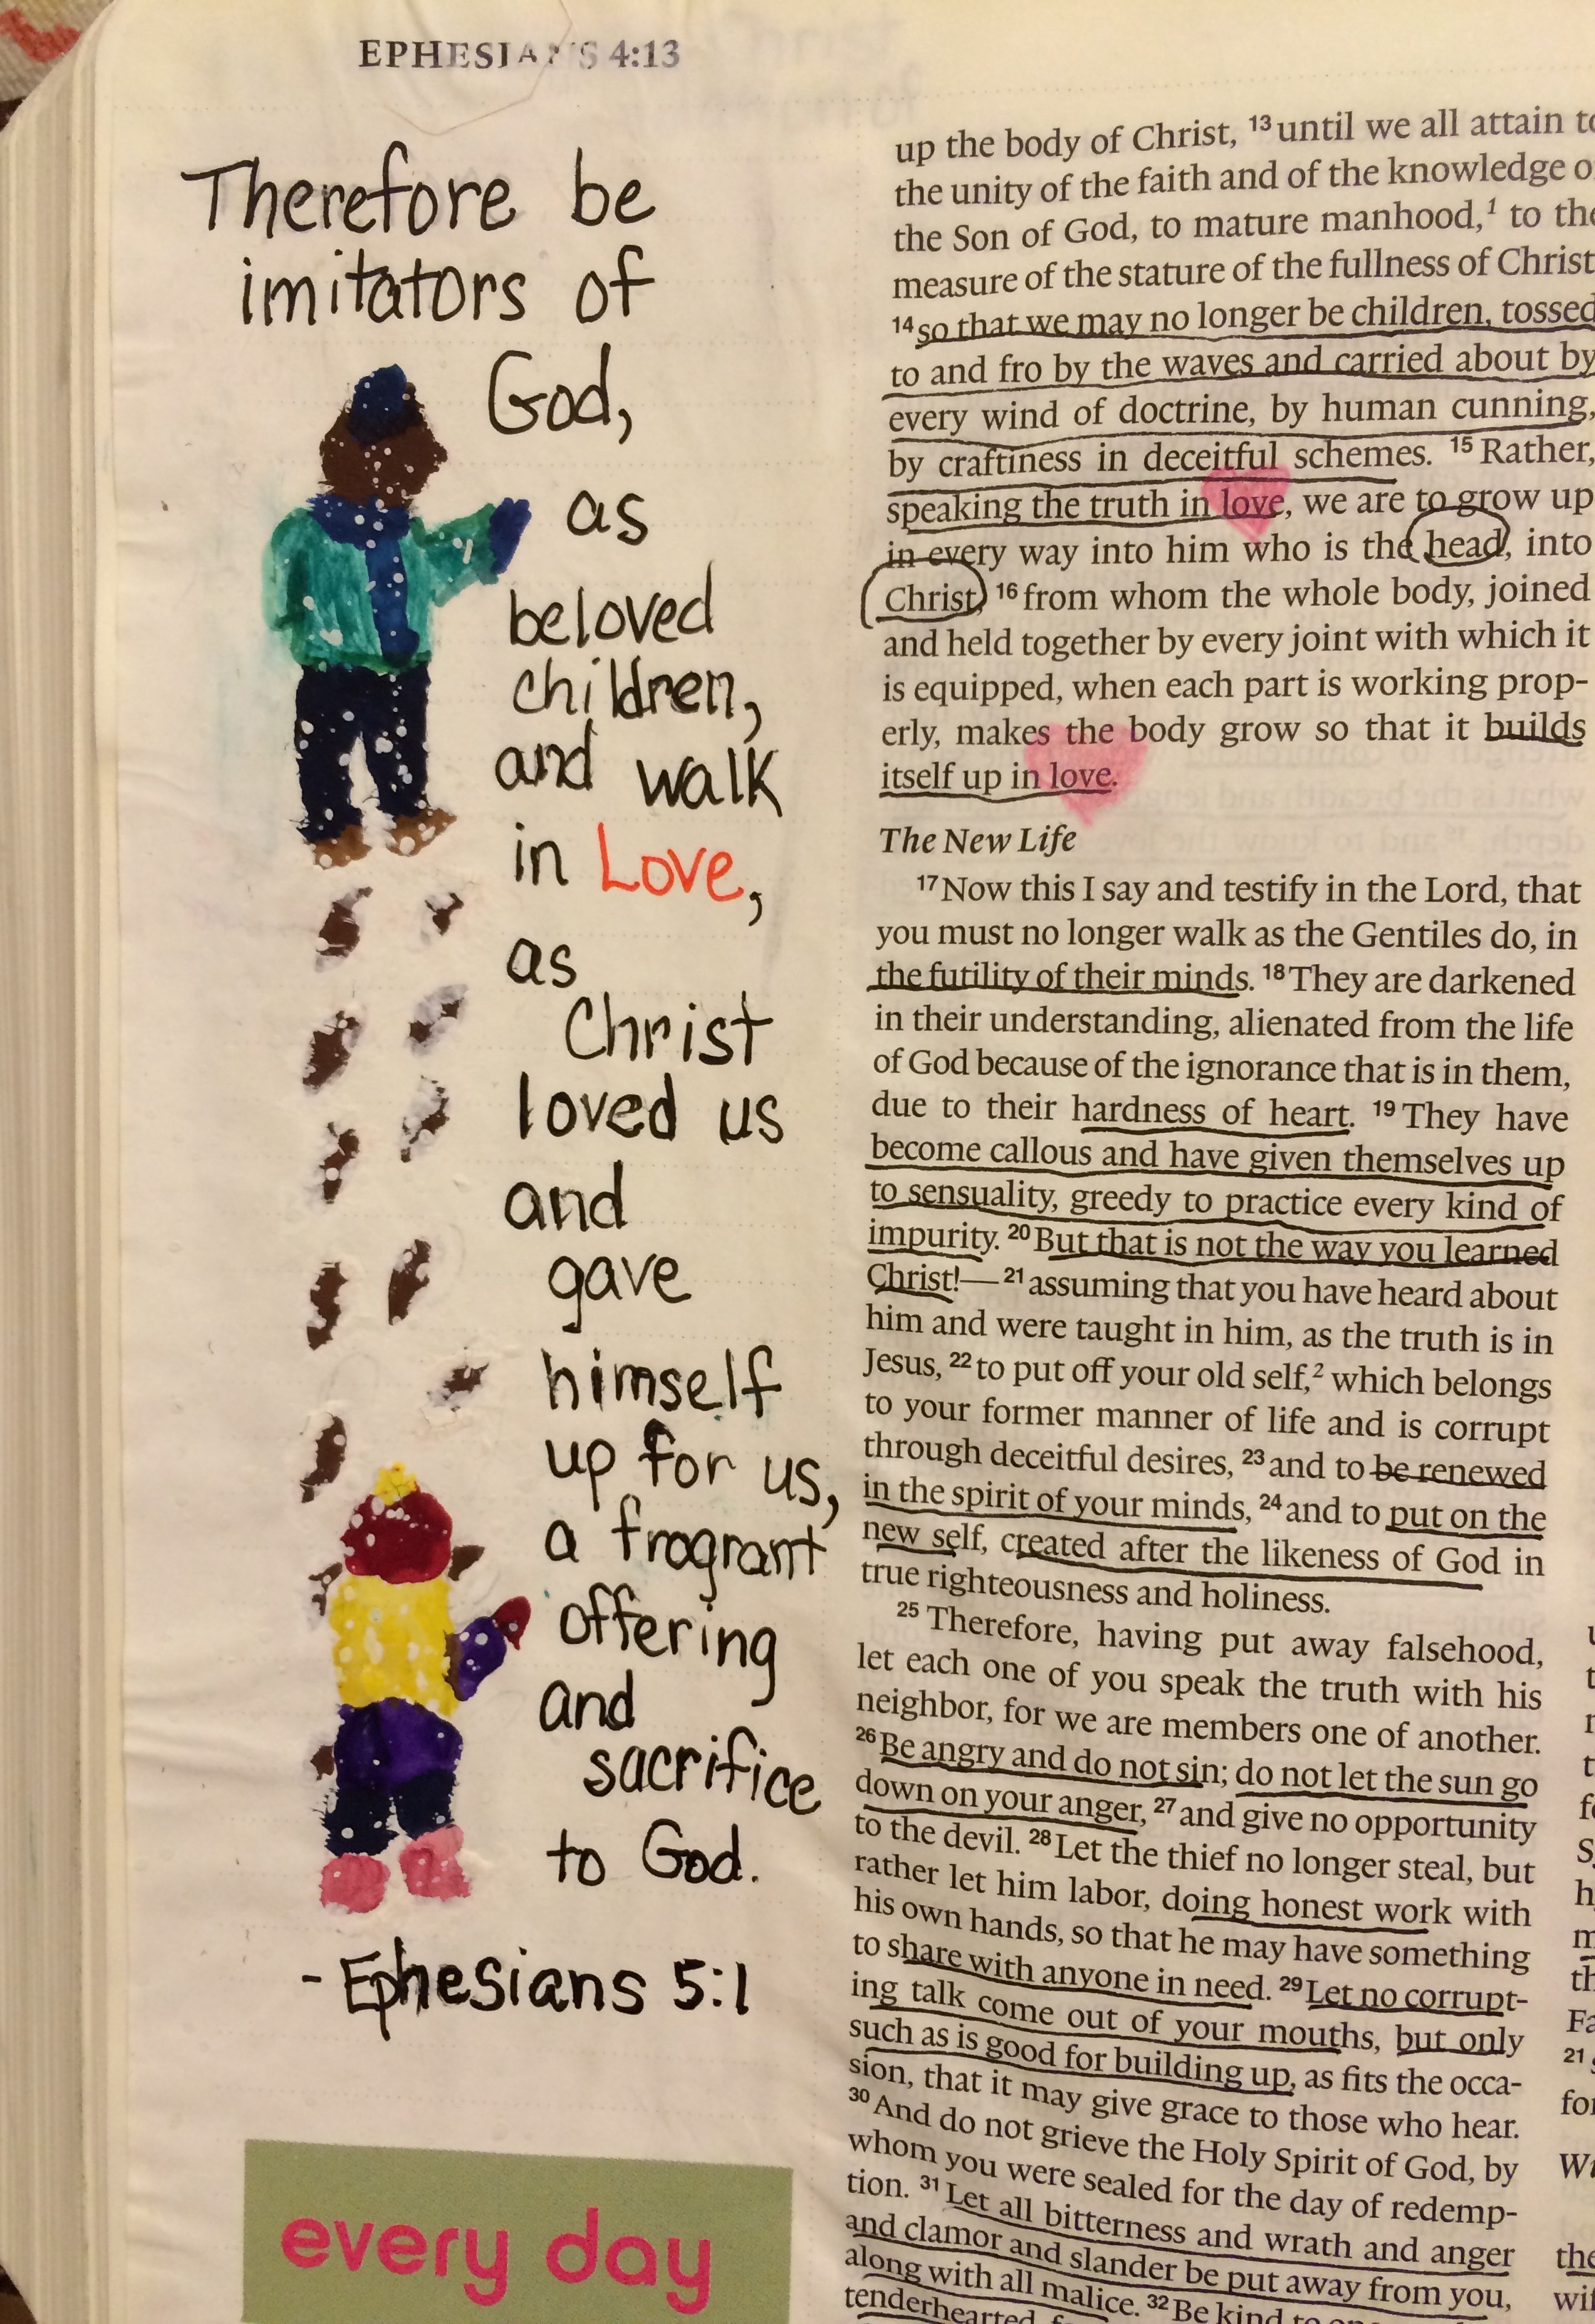 EPHESIANS 4:13
Therefore be
imitators of
God,
as
beloved
children,
and walk
in Love,
as
Christ
loved us
and
gave
himself
up for us,
a frogrant
offering
and
sacrifice
to God.
- Ephesians 5:1
every day
up the body of Christ, 13 until we all attain to
the unity of the faith and of the knowledge o
the Son of God, to mature manhood,1 to the
measure of the stature of the fullness of Christ
14 so that we may no longer be children, tossed
to and fro by the waves and carried about by
every wind of doctrine, by human cunning,
by craftiness in deceitful schemes. 15 Rather,
speaking the truth in love, we are to grow up
in every way into him who is the head, into
Christ, 16 from whom the whole body, joined
and held together by every joint with which it
is equipped, when each part is working prop-
erly, makes the body grow so that it builds
itself up in love.
The New Life
17 Now this I say and testify in the Lord, that
you must no longer walk as the Gentiles do, in
the futility of their minds. 18 They are darkened
in their understanding, alienated from the life
of God because of the ignorance that is in them,
due to their hardness of heart. 19 They have
become callous and have given themselves up
to sensuality, greedy to practice every kind of
impurity. 20 But that is not the way you learned
Christ!— 21 assuming that you have heard about
him and were taught in him, as the truth is in
Jesus, 22 to put off your old self,2 which belongs
to your former manner of life and is corrupt
through deceitful desires, 23 and to be renewed
in the spirit of your minds, 24 and to put on the
new self, created after the likeness of God in
true righteousness and holiness.
25 Therefore, having put away falsehood,
let each one of you speak the truth with his
neighbor, for we are members one of another.
26 Be angry and do not sin; do not let the sun go
down on your anger, 27 and give no opportunity
to the devil. 28 Let the thief no longer steal, but
rather let him labor, doing honest work with
his own hands, so that he may have something
to share with anyone in need. 29 Let no corrupt-
ing talk come out of your mouths, but only
such as is good for building up, as fits the occa-
sion, that it may give grace to those who hear.
30 And do not grieve the Holy Spirit of God, by
whom you were sealed for the day of redemp-
tion. 31 Let all bitterness and wrath and anger
and clamor and slander be put away from you,
along with all malice. 32 Be kind to
tenderhearted,